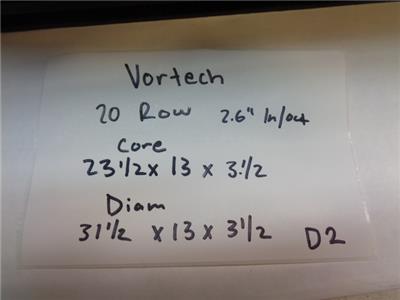 Vortech
20 Row 2.6" In/out
Core
23 1/2 x 13 x 3 1/2
Diam
31 1/2 x 13 x 3 1/2 D2